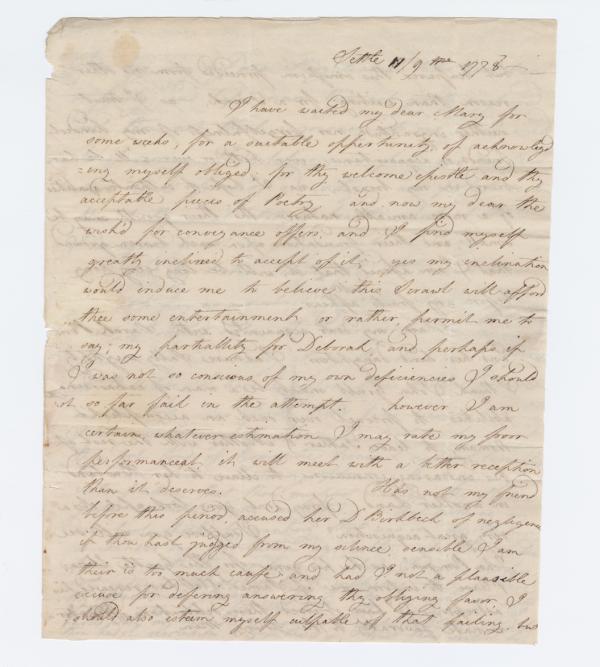 Settle 11/9 mo 1778
I have waited my dear Mary for
some weeks, for a suitable oppertunity, of acknowledg
=ing myself obliged, for thy welcome epistle and thy
acceptable pieces of Poetry and now my dear the
wish'd for conveyance offers, and I find myself
greatly inclined to accept of it. yes my inclination
would induce me to believe this Scrawl will afford
thee some entertainment or rather, permit me to
say, my partiallity for Deborah, and perhaps if
I was not so conscious of my own deficiencies I should
not so far fail in the attempt. however I am
certain, whatever estimation I may rate my poor
performance at, it will meet with a better reception
than it deserves. Has not my friend
before this period, accused her D Birkbeck of negligence
if thou hast judged from my silence, sensible I am
their is too much cause and had I not a plausible
excuse for defering answering thy obliging favor I
should also esteem myself culpable of that failing. but